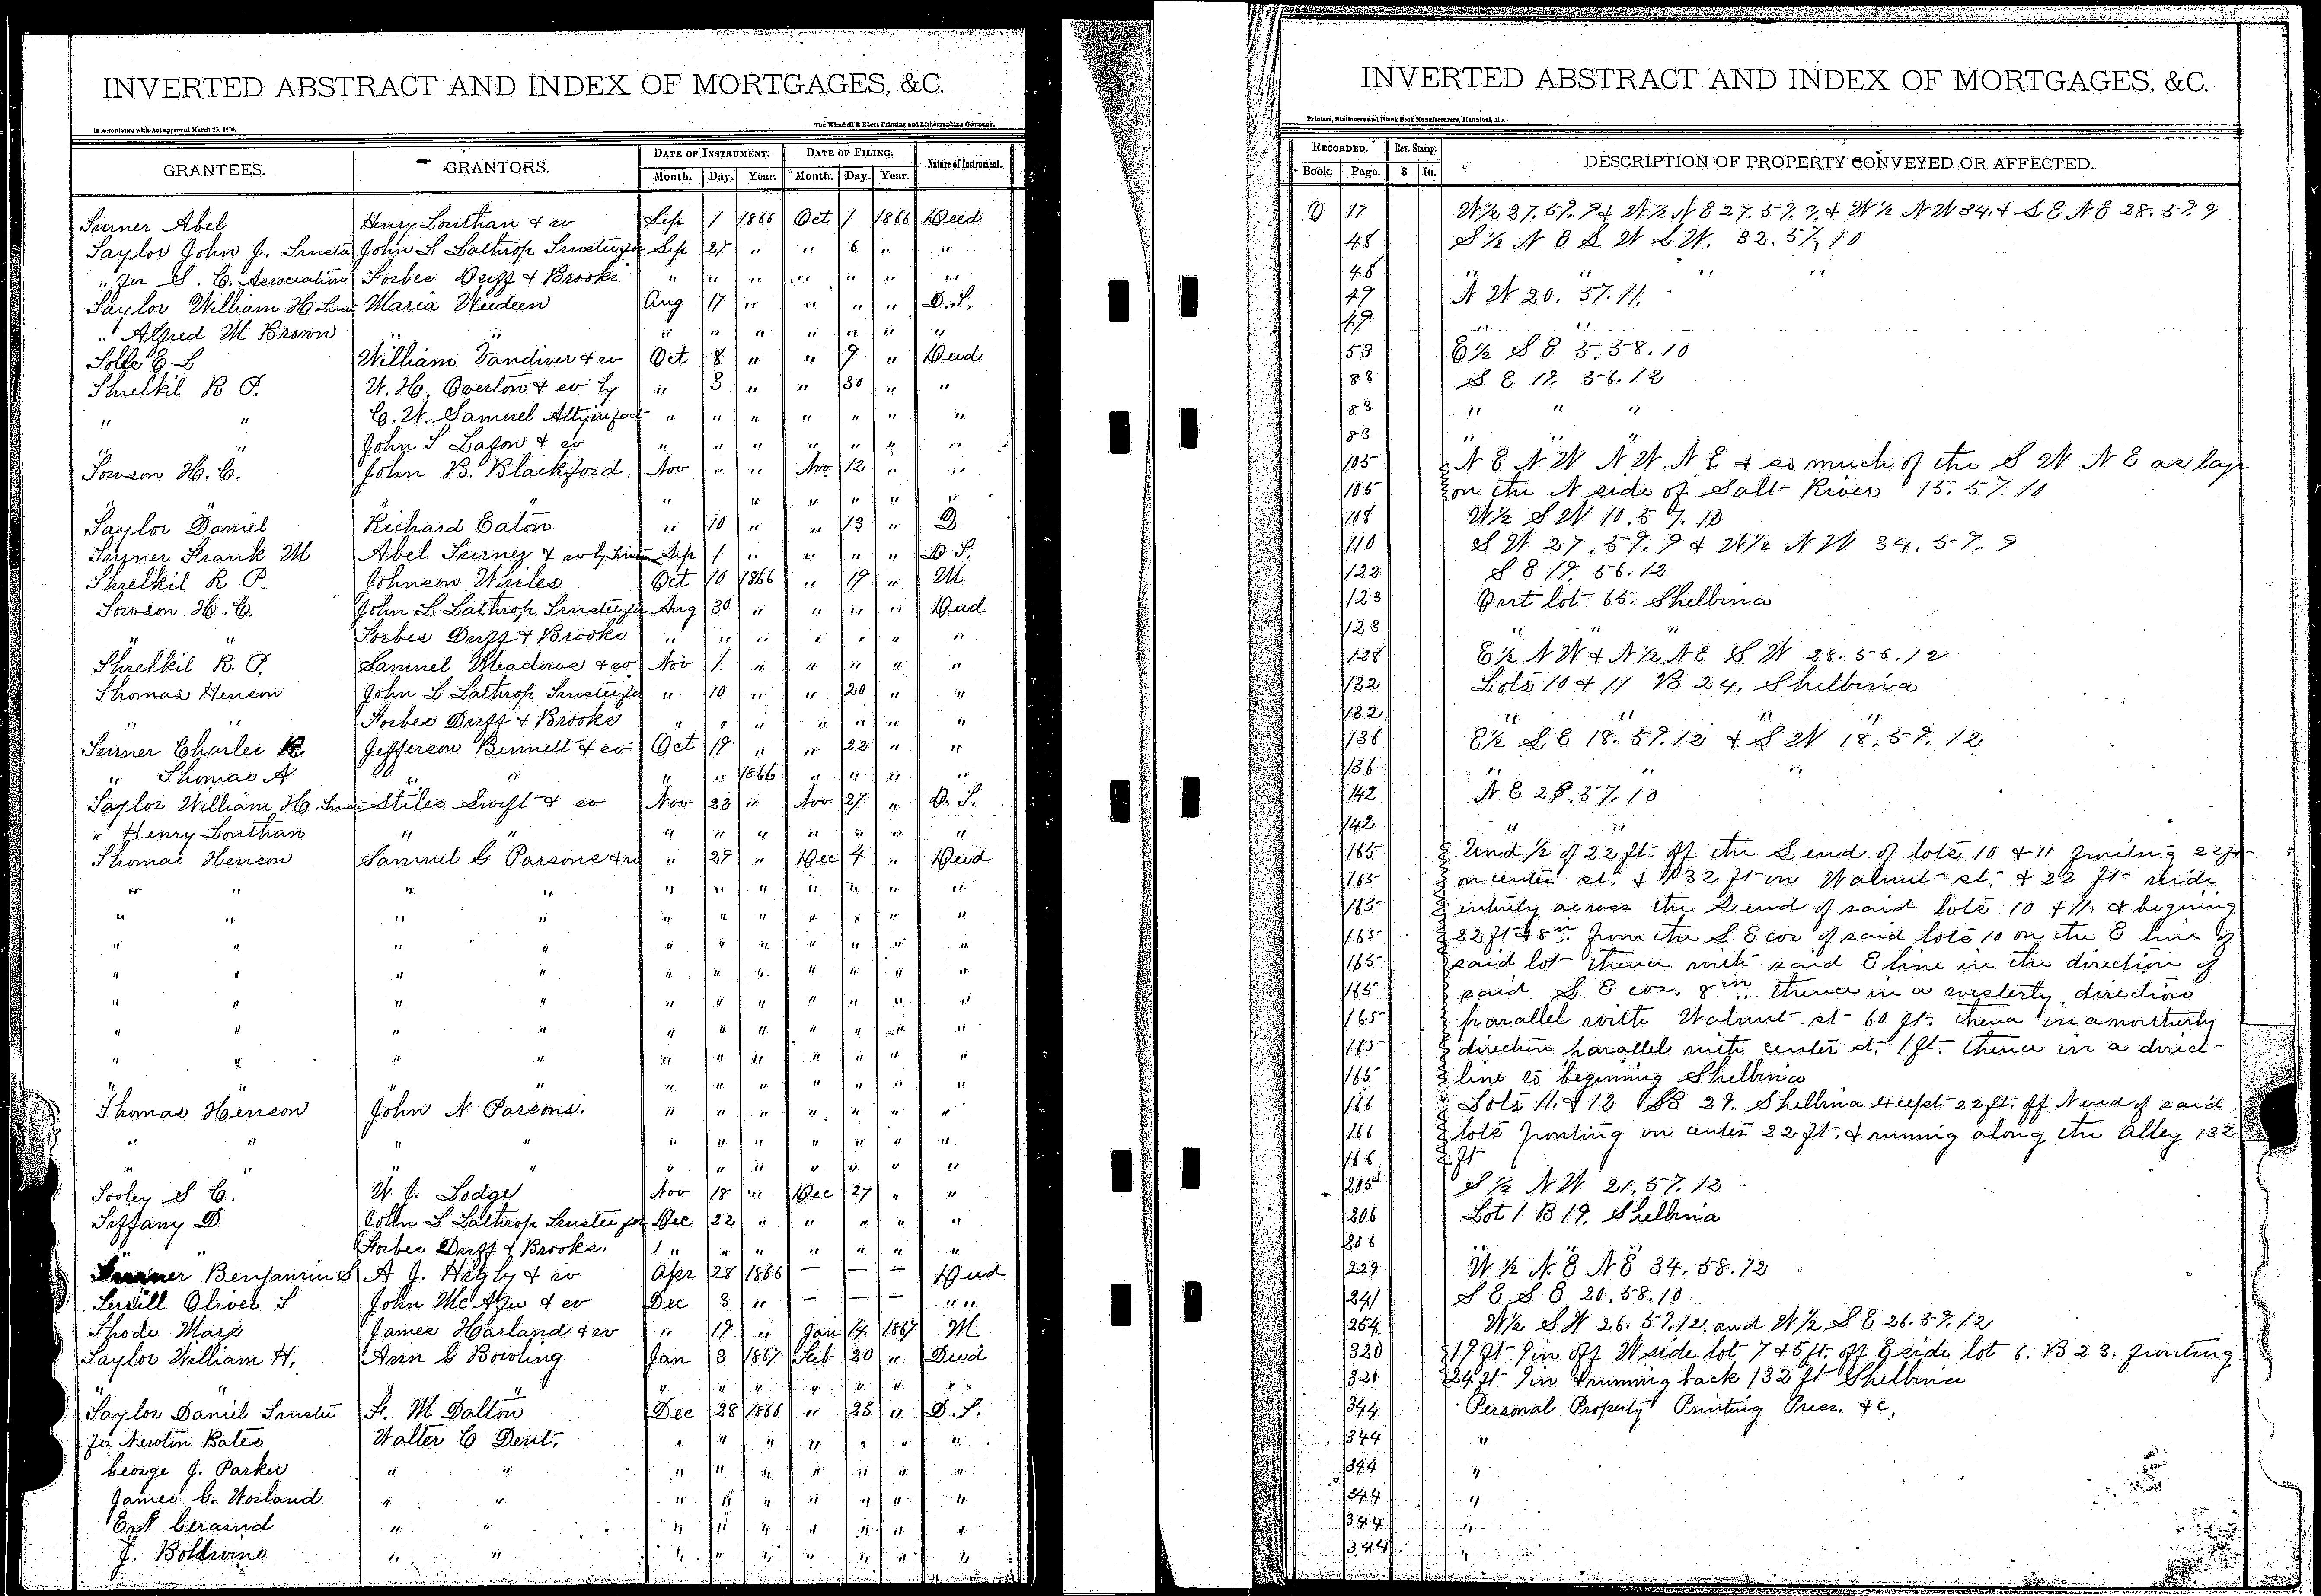 INVERTED ABSTRACT AND INDEX OF MORTGAGES, &C.
In accordance with Act approved March 25, 1870.
The Winchell & Ebert Printing and Lithographing Company,
GRANTEES. GRANTORS. DATE OF INSTRUMENT. DATE OF FILING. Nature of Instrument.
Month. Day. Year. Month. Day. Year.
Turner Abel Henry Louthan & w Sep 1 1866 Oct 1 1866 Deed
Taylor John J. Trustee John L Lathrop Trustee for Sep 27 " " 6 " "
" for S. C. Association Forbes Duff & Brooks " " " " " " "
Taylor William H Maria Weeden Aug 17 " " " " D.T.
" Alfred M Brown " " " " " " " " "
Tolle E L William Vandiver & w Oct 8 " " 9 " Deed
Threlkil R P. W. H. Overton & w by " 3 " " 30 " "
" " C. W. Samuel Atty in fact " " " " " " "
" " John T Lafon & w " " " " " " "
Towson H. C. John B. Blackford Nov " " Nov 12 " "
" " " " " " " " "
Taylor Daniel Richard Eaton " 10 " " 13 " D
Turner Frank M Abel Turner & w by Sep 1 " " " " D T.
Threlkil R P. Johnson Whiles Oct 10 1866 " 19 " M
Towson H. C. John L Lathrop Trustee for Aug 30 " " " " Deed
Forbes Duff & Brooks " " " " " " "
Threlkil R. P. Samuel Meadows & w Nov 1 " " " " "
Thomas Henson John L Lathrop Trustee for " 10 " " 20 " "
" " Forbes Duff & Brooks " " " " " " "
Turner Charles Jefferson Bennell & w Oct 19 " " 22 " "
" Thomas A " " " " 1866 " " " "
Taylor William H. Stiles Swift & w Nov 23 " Nov 27 " D. T.
" Henry Louthan " " " " " " " " "
Thomas Henson Samuel G Parsons & w " 29 " Dec 4 " Deed
" " " " " " " " " " "
" " " " " " " " " " "
" " " " " " " " " " "
" " " " " " " " " " "
" " " " " " " " " " "
" " " " " " " " " " "
" " " " " " " " " " "
" " " " " " " " " " "
Thomas Henson John N Parsons. " " " " " " "
" " " " " " " " " " "
" " " " " " " " " "
Tooley S C. W J. Lodge Nov 18 " Dec 27 " "
Tiffany D John L Lathrop Trustee for Dec 22 " " " " "
" Forbes Duff & Brooks. " " " " " " "
Turner Benjamin S A J. Higby & w Apr 28 1866 — — — Deed
Terrill Oliver T John McAfee & w Dec 3 " — — — " "
James Harland & w " 19 " Jan 14 1867 M
Taylor William H. Ann G Bowling Jan 3 1867 Feb 20 " Deed
" " " " " " " " " "
Taylor Daniel Trustee F. M Dalton Dec 28 1866 " 23 " D.T.
for Newton Bates Walter C Dent. " " " " " " "
George J. Parker " " " " " " " " "
James C. Worland " " " " " " " " "
" " " " " " " " "
" " " " " " " " "
INVERTED ABSTRACT AND INDEX OF MORTGAGES, &C.
Printers, Stationers and Blank Book Manufacturers, Hannibal, Mo.
RECORDED. Rev. Stamp. DESCRIPTION OF PROPERTY CONVEYED OR AFFECTED.
Book. Page. $ Cts.
Q 17 W½ 27.57.9 & W½ N E 27.57.9. & W½ N W 34. & S E N E 28.57.9
48 S½ N E S W S W. 32.57.10
48 " " " "
49 N W 20.57.11.
49 " "
53 E½ S E 5.58.10
83 S E 19.56.12
83 " " "
83 " " "
105 N E N W N W. N E & so much of the S W N E as lays
105 on the N side of Salt River 15.57.10
108 W½ S W 10.57.10
110 S W 27.57.9 & W½ N W 34.57.9
122 S E 19.56.12
123 Part lot 65. Shelbina
123 " " "
128 E½ N W & N½ N E S W 28.56.12
132 Lots 10 & 11 B 24. Shelbina
132 " " " "
136 E½ S E 18.57.12 & S W 18.57.12
136 " " "
142 N E 28.57.10
142 " "
165 Und ½ of 22 ft. off the S end of lots 10 & 11 fronting 22 ft
165 on center st. & 132 ft on Walnut st. & 22 ft wide
165 entirely across the S end of said lots 10 & 11. & begining
165 22 ft & 8 in from the S E cor of said lots 10 on the E line of
165 said lot thence with said E line in the direction of
165 said S E cor. 8 in. thence in a westerly direction
165 parallel with Walnut st 60 ft. thence in a northerly
165 direction parallel with center st. 1 ft. thence in a direct
165 line to begining Shelbina
166 Lots 11 & 12 B 29. Shelbina except 22 ft. off N end of said
166 lots fronting on center 22 ft. & running along the Alley 132
166 ft
205 S½ N W 21.57.12
206 Lot 1 B 19. Shelbina
206 " " "
229 W½ N E N E 34.58.12
241 S E S E 20.58.10
254 W½ S W 26.57.12. and W½ S E 26.57.12
320 19 ft 9 in off W side lot 7 & 5 ft. off E side lot 6. B 23. fronting
320 24 ft 9 in & running back 132 ft Shelbina
344 Personal Property Printing Press. &c.
344 "
344 "
344 "
344 "
344 "